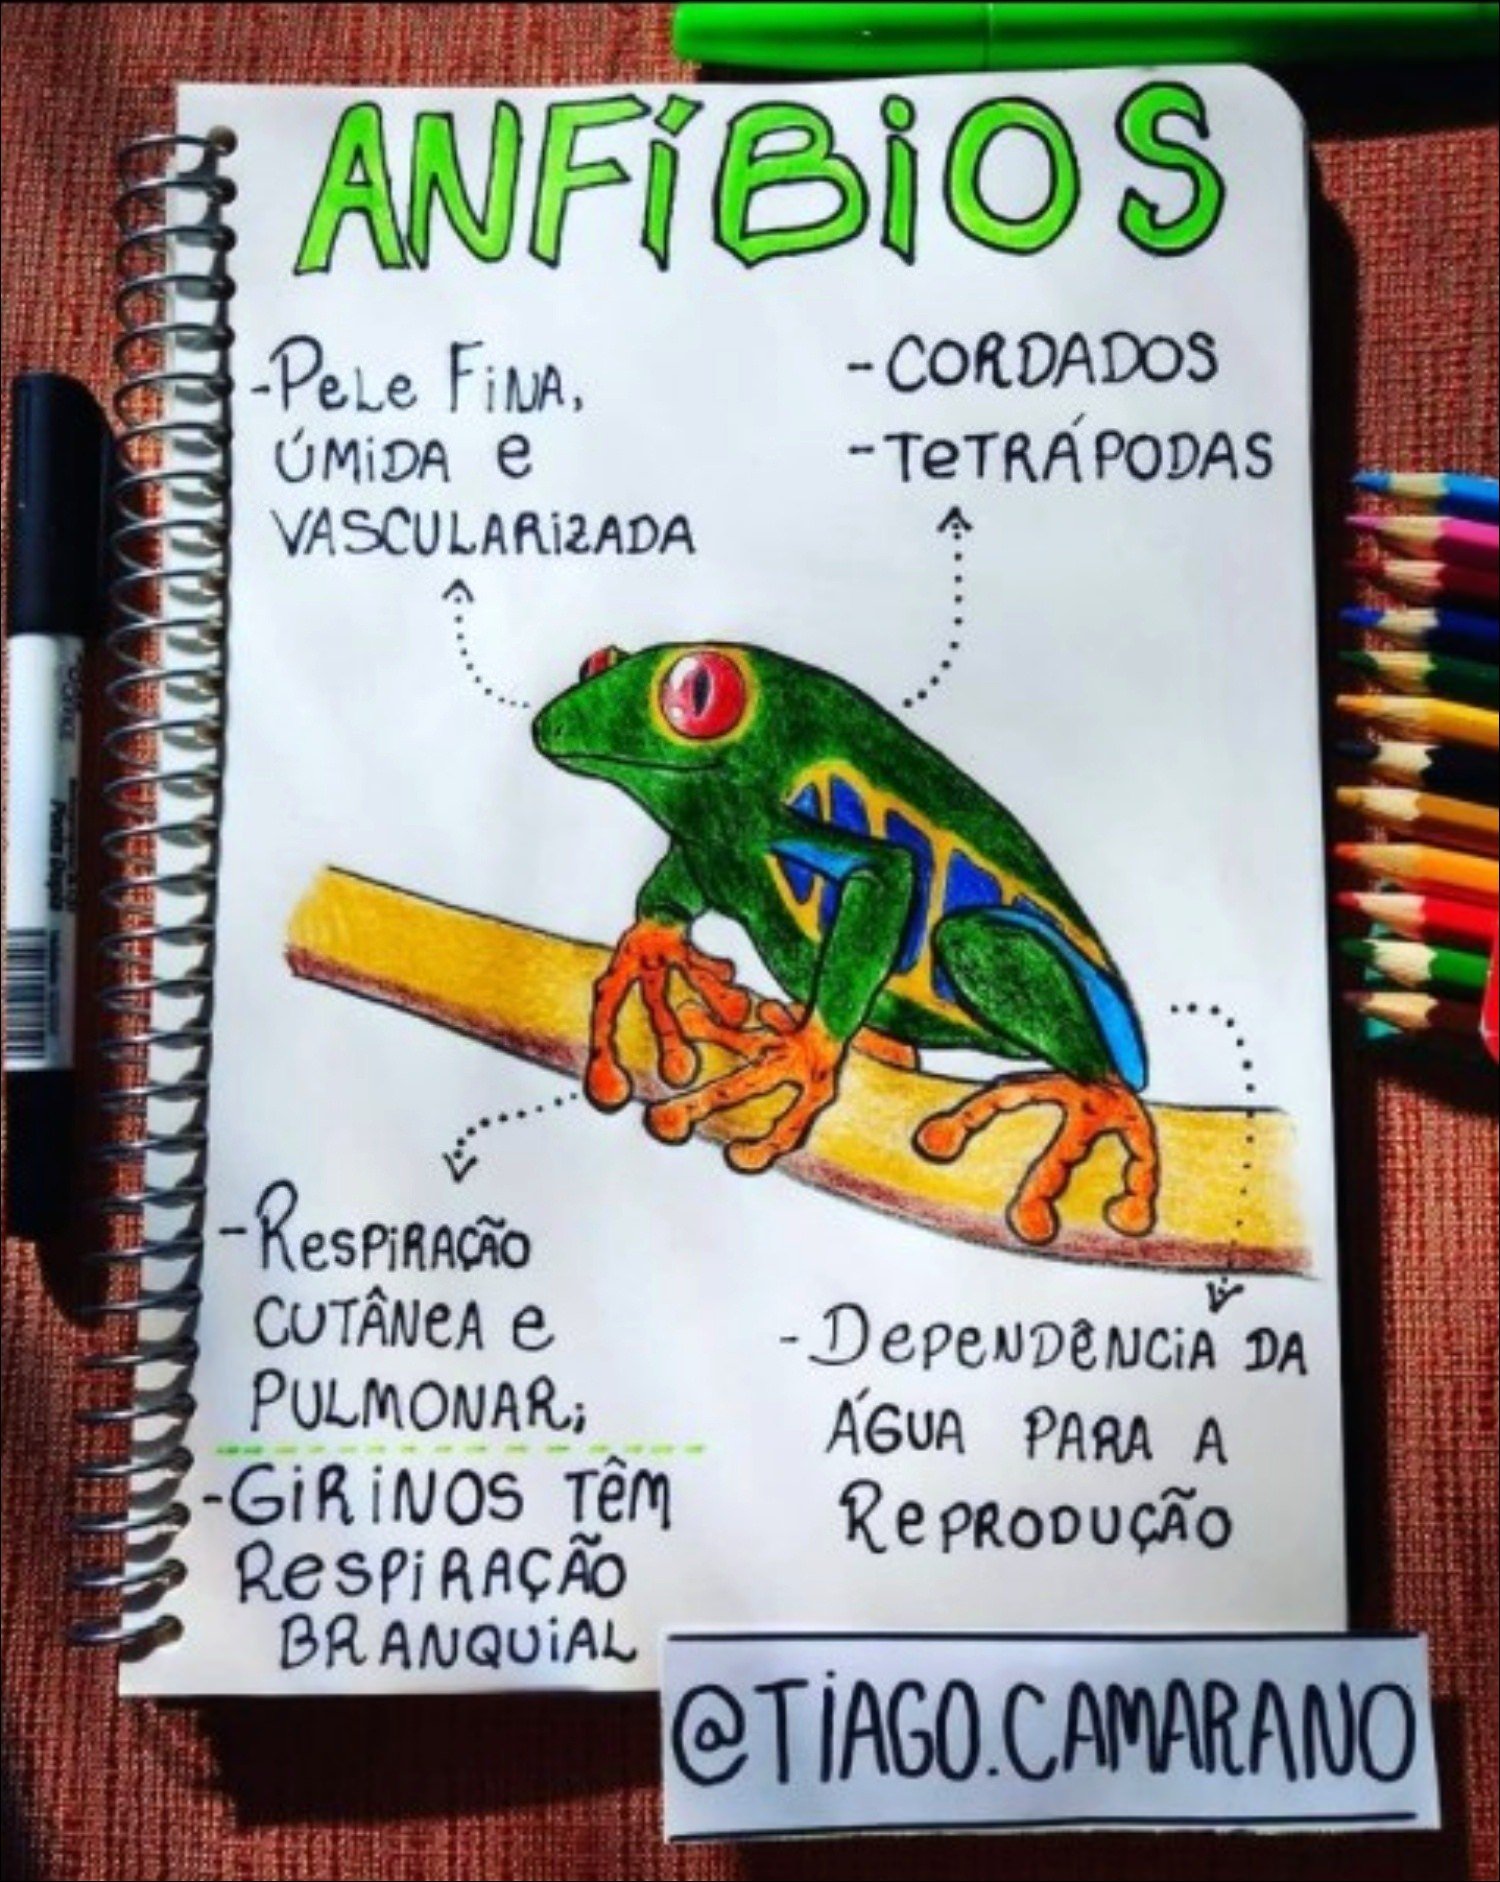 ANFÍBIOS
-PELE FINA,
ÚMIDA E
VASCULARIZADA
-CORDADOS
-TETRÁPODAS
-RESPIRAÇÃO
CUTÂNEA E
PULMONAR;
-GIRINOS TÊM
RESPIRAÇÃO
BRANQUIAL
-DEPENDÊNCIA DA
ÁGUA PARA A
REPRODUÇÃO
@TIAGO.CAMARANO